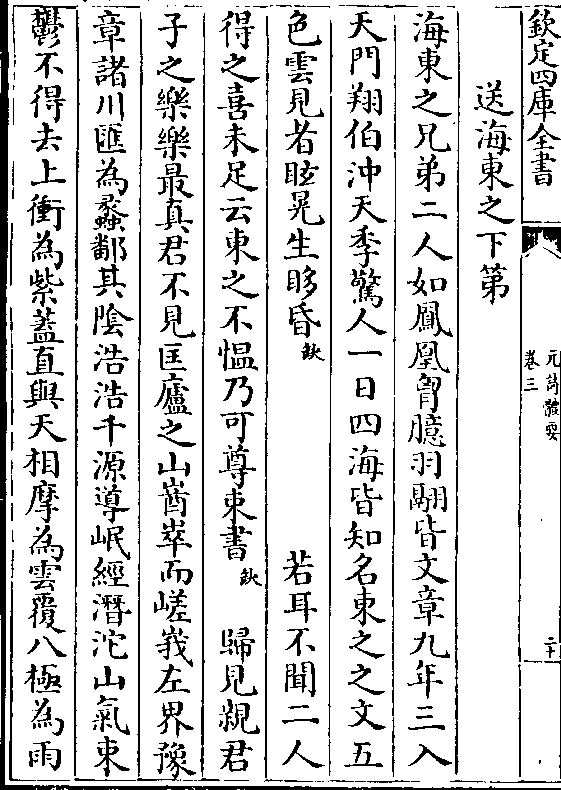 欽定四庫全書
元詩體要
卷三
二十
送海東之下第
海東之兄弟二人如鳳凰胷臆羽翮皆文章九年三入
天門翔伯沖天季驚人一日四海皆知名東之之文五
色雲見者眩晃生眵昏缺　　　　若耳不聞二人
得之喜未足云東之不愠乃可尊束書缺　歸見親君
子之樂樂最真君不見匡廬之山崷崒而嵯峩左界豫
章諸川匯為蠡鄱其陰浩浩千源導岷經潛沱山氣束
鬱不得去上衝為紫蓋直與天相摩為雲覆八極為雨